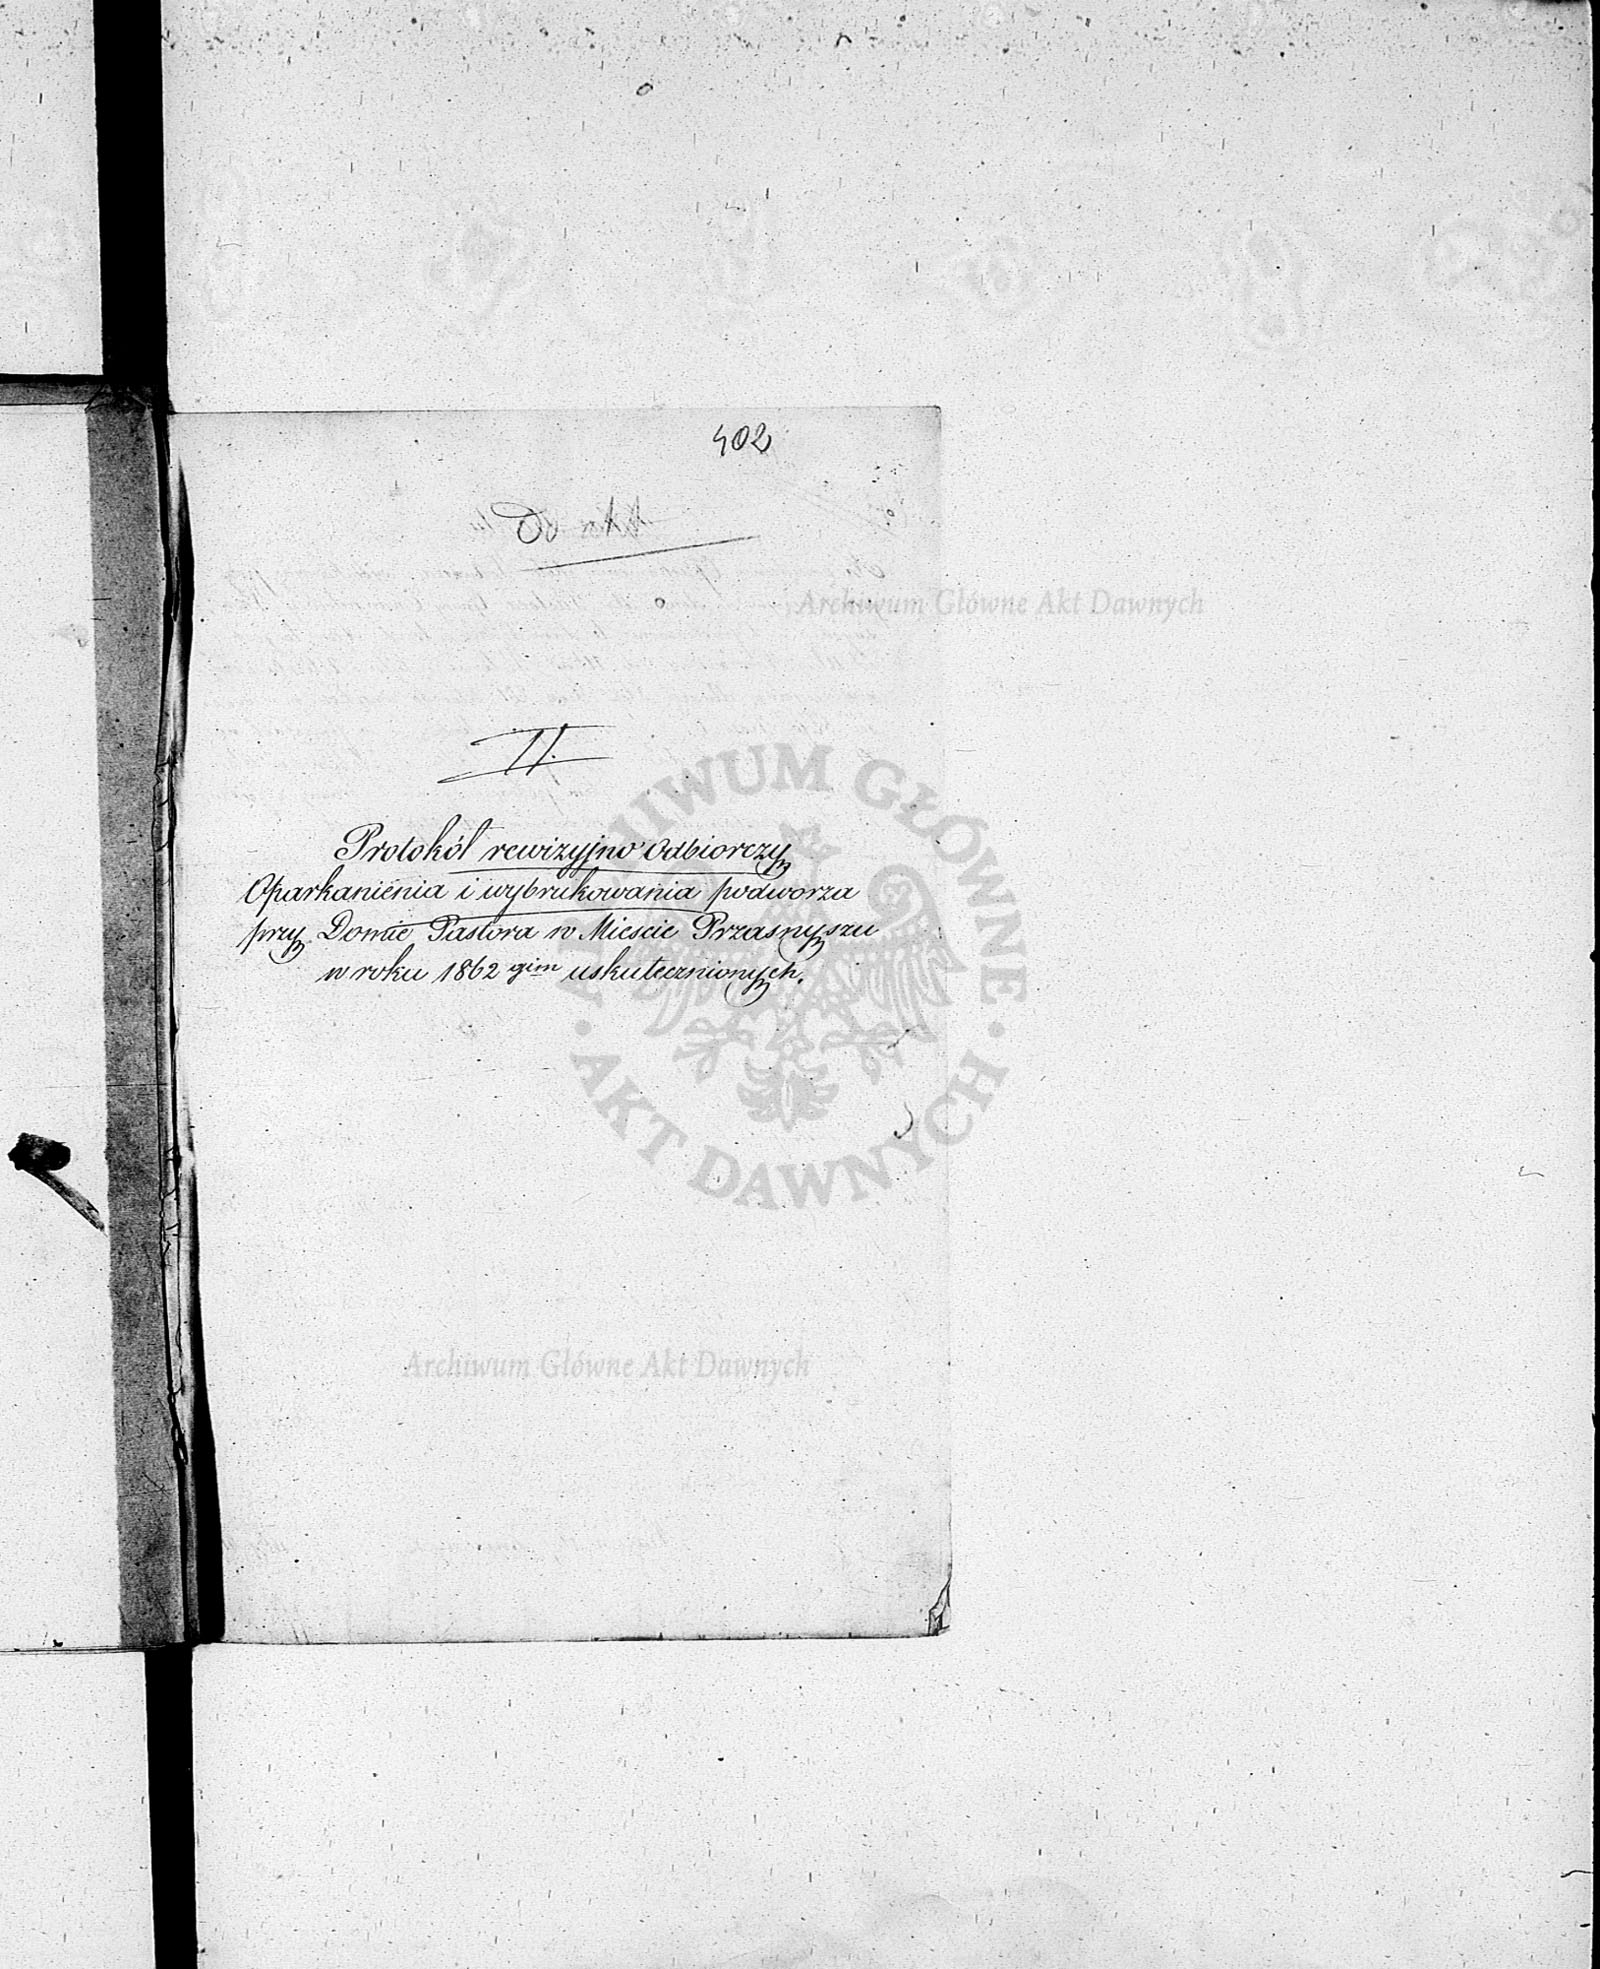 402
II.
Protokół rewizyjno Odbiorczy
Oparkanienia i wybrukowania podworza
przy Domie Pastora w Miescie Przasnyszu
w roku 1862 gim uskutecznionych.
Archiwum Główne Akt Dawnych
ARCHIWUM GŁÓWNE
· AKT DAWNYCH ·
Archiwum Główne Akt Dawnych